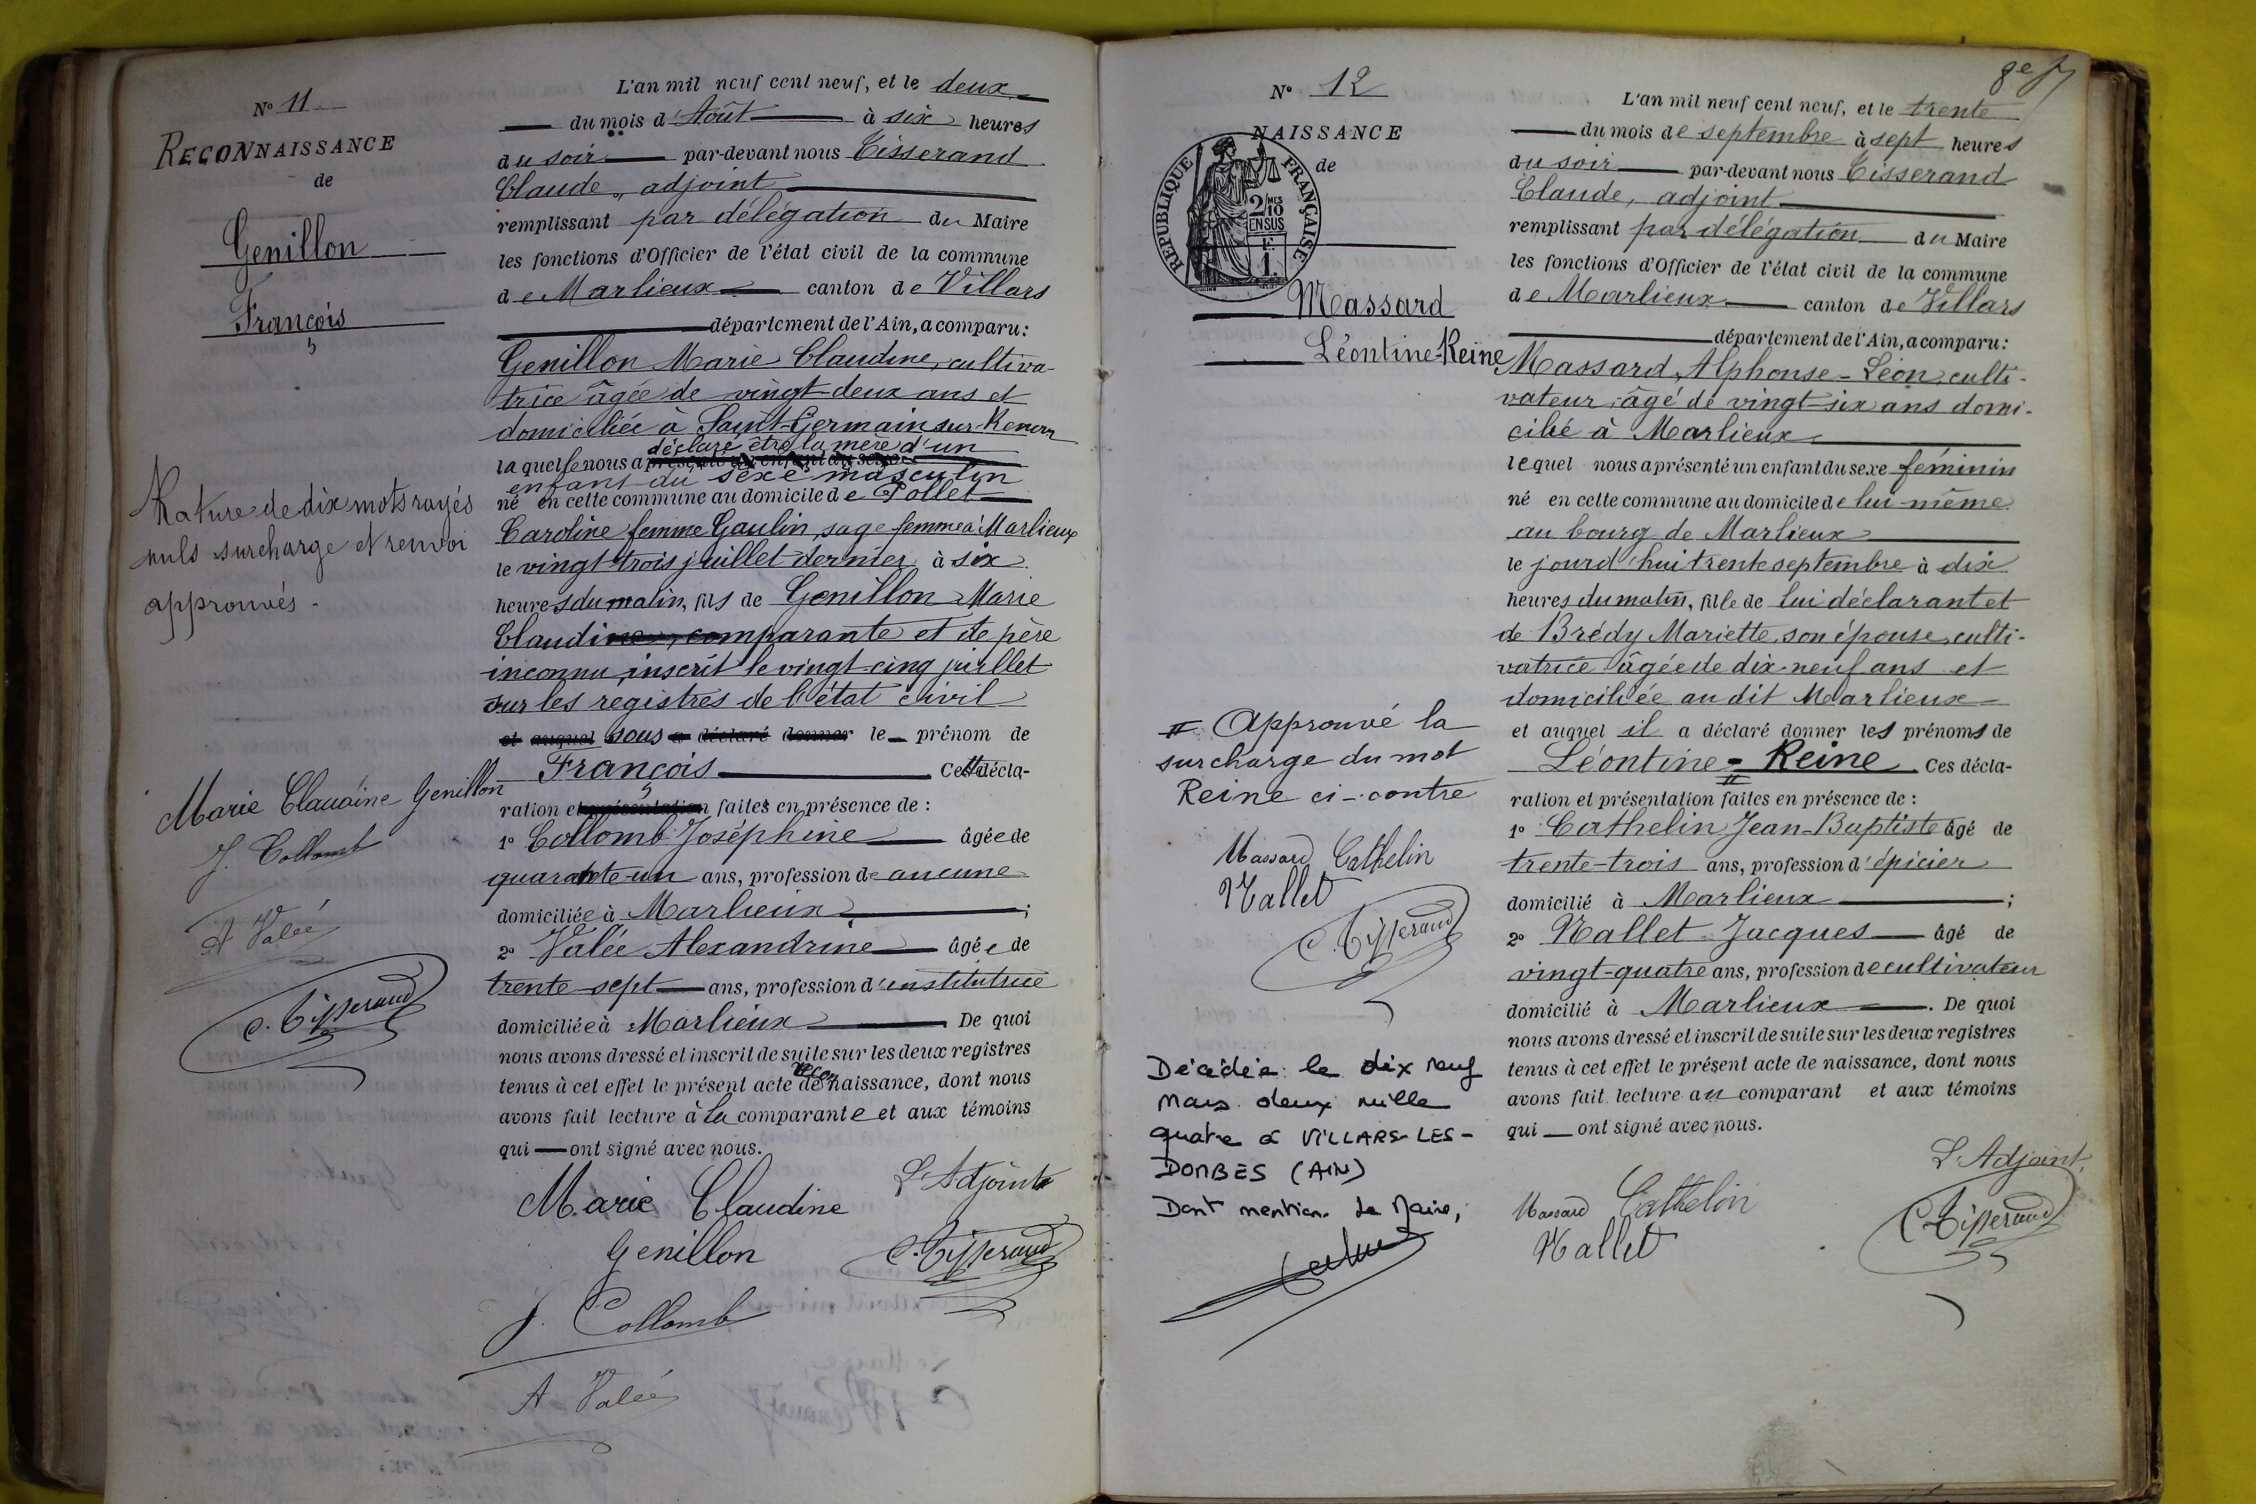 N° 11
RECONNAISSANCE
de
Genillon
François
Rature de dix mots rayés
nuls surcharge et renvoi
approuvés.
Marie Claudine Genillon
J. Collomb
A Valée
C. Tisserand
L'an mil neuf cent neuf, et le deux
du mois d'Août à six heures
du soir par-devant nous Tisserand
Claude, adjoint
remplissant par délégation du Maire
les fonctions d'Officier de l'état civil de la commune
de Marlieux canton de Villars
département de l'Ain, a comparu:
Genillon Marie Claudine, cultiva-
trice âgée de vingt-deux ans et
domiciliée à Saint-Germain-sur-Renon
déclaré être la mère d'un
laquelle nous a présenté un enfant du sexe
enfant du sexe masculin
né en cette commune au domicile de Pollet
Caroline femme Gaulin, sage femme à Marlieux
le vingt trois juillet dernier à six
heures du matin, fils de Genillon Marie
Claudine, comparante et de père
inconnu, inscrit le vingt-cinq juillet
sur les registres de l'état civil
et auquel sous a déclaré donner le prénom de
François Cette décla-
ration et présentation faites en présence de :
1° Collomb Joséphine âgée de
quarante-un ans, profession de aucune
domiciliée à Marlieux ;
2° Valée Alexandrine âgée de
trente-sept ans, profession d'institutrice
domiciliée à Marlieux. De quoi
nous avons dressé et inscrit de suite sur les deux registres
recon
tenus à cet effet le présent acte de naissance, dont nous
avons fait lecture à la comparante et aux témoins
qui ont signé avec nous.
Marie Claudine
Genillon
L'Adjoint
C. Tisserand
J. Collomb
A Valée
8e
N° 12
NAISSANCE
de
RÉPUBLIQUE FRANÇAISE
2/10 MES
EN SUS
E.
1.
Massard
Léontine-Reine
Approuvé la
surcharge du mot
Reine ci-contre
Massard Cathelin
Nallet
C. Tisserand
Décédée le dix neuf
Mars deux mille
quatre à VILLARS-LES-
DOMBES (AIN)
Dont mention. Le Maire,
L'an mil neuf cent neuf, et le trente
du mois de septembre à sept heures
du soir par-devant nous Tisserand
Claude, adjoint
remplissant par délégation du Maire
les fonctions d'Officier de l'état civil de la commune
de Marlieux canton de Villars
département de l'Ain, a comparu:
Massard, Alphonse-Léon, culti-
vateur, âgé de vingt-six ans domi-
cilié à Marlieux
lequel nous a présenté un enfant du sexe féminin
né en cette commune au domicile de lui-même
au bourg de Marlieux
le jourd'hui trente septembre à dix
heures du matin, fille de lui déclarant et
de Brédy Mariette, son épouse, culti-
vatrice âgée de dix-neuf ans et
domiciliée au dit Marlieux
et auquel il a déclaré donner les prénoms de
Léontine-Reine Ces décla-
ration et présentation faites en présence de :
1° Cathelin Jean-Baptiste âgé de
trente-trois ans, profession d'épicier
domicilié à Marlieux ;
2° Nallet Jacques âgé de
vingt-quatre ans, profession de cultivateur
domicilié à Marlieux. De quoi
nous avons dressé et inscrit de suite sur les deux registres
tenus à cet effet le présent acte de naissance, dont nous
avons fait lecture au comparant et aux témoins
qui ont signé avec nous.
L'Adjoint,
Massard Cathelin
Nallet
C. Tisserand